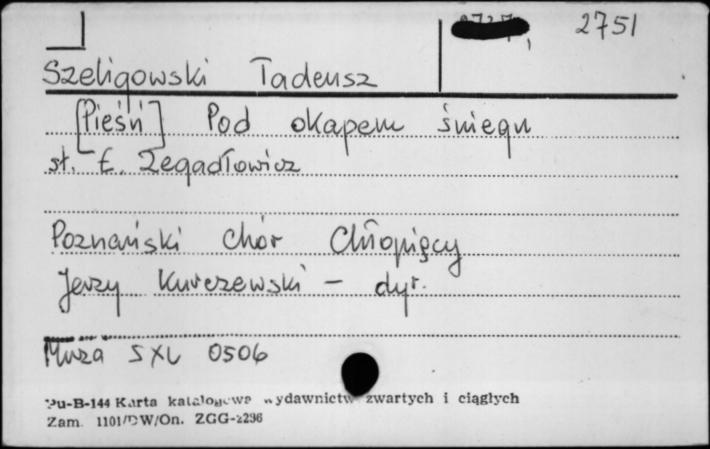 2751
Szeligowski Tadeusz
[Pieśń] Pod okapem śniegu
sł. E. Zegadłowicz
Poznański Chór Chłopięcy
Jerzy Kurczewski - dyr.
Muza SXL 0506
Pu-B-144 Karta katalogowa wydawnictw zwartych i ciągłych
Zam. 1101/DW/On. ZGG-2236